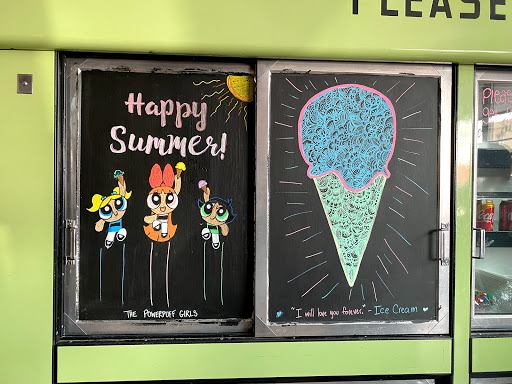 PLEASE
Happy
Summer!
THE POWERPUFF GIRLS
"I will love you forever." - Ice Cream
Please